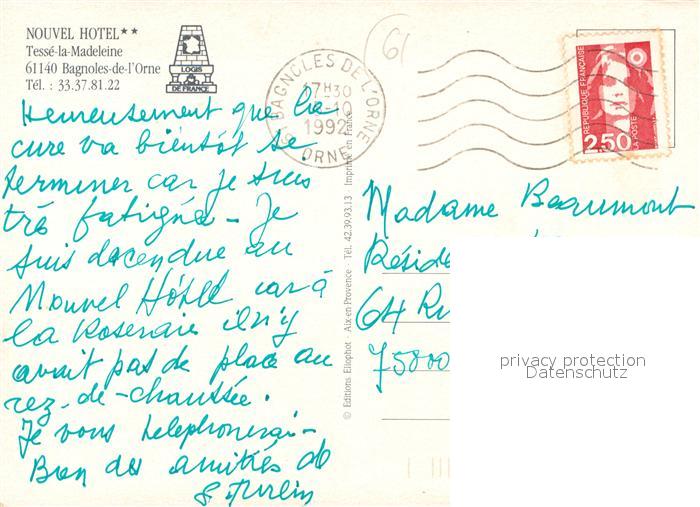 NOUVEL HOTEL★★
Tessé-la-Madeleine
61140 Bagnoles-de-l'Orne
Tél. : 33.37.81.22
LOGIS
DE FRANCE
BAGNOLES DE L'ORNE
17H30
-10
1992
61 ORNE
61
RÉPUBLIQUE FRANÇAISE
2,50
LA POSTE
Heureusement que la
cure va bientôt se
terminer car je suis
trè fatiguée - Je
suis descendue au
Nouvel Hôtel car à
la Roseraie il n'y
avait pas de place au
rez-de-chaussée.
Je vous telephonerai-
Bien des amitiés de
© Editions Eliophot - Aix-en-Provence - Tél. 42.39.93.13 - Imprimé en France
Madame Beaumont
Réside
64 Ru
75800
privacy protection
Datenschutz